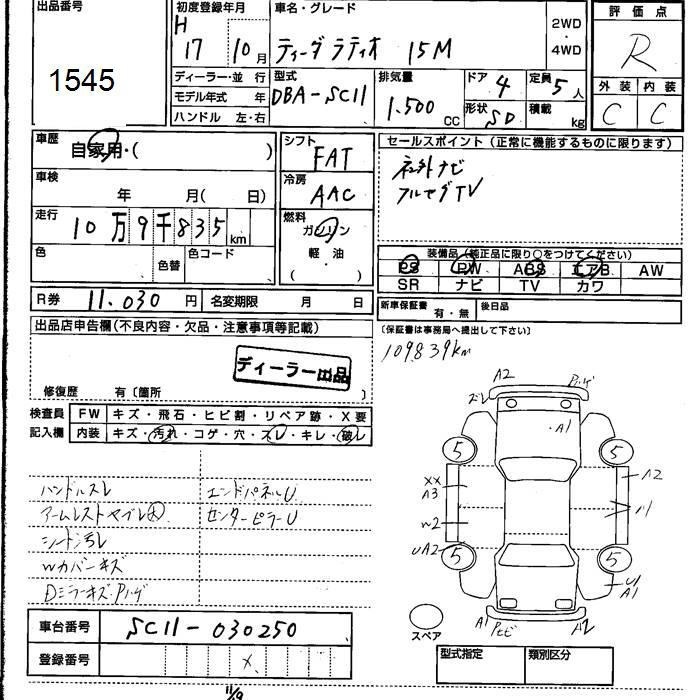 出品番号
1545
初度登録年月
H
17 10月
車名・グレード
ティーダラティオ 15M
2WD
・
4WD
評価点
R
外装 内装
C C
ディーラー・並行
モデル年式 年
ハンドル 左・右
型式
DBA-SC11
排気量
1.500 CC
ドア 4
形状 SD
定員 5人
積載 kg
車歴
自家用・( )
車検
年 月( 日)
走行
10万9千835 km
色
色替
色コード
シフト
FAT
冷房
AAC
燃料
ガソリン
軽油
( )
セールスポイント(正常に機能するものに限ります)
社外ナビ
フルセグTV
装備品(純正品に限り○をつけてください)
PS PW ABS エアB AW
SR ナビ TV カワ
R券 11.030円 名変期限 月 日
新車保証書
有・無
後日品
(保証書は事務局へ提出して下さい)
109839km
出品店申告欄(不良内容・欠品・注意事項等記載)
ディーラー出品
修復歴 有〔箇所 〕
検査員
記入欄
FW キズ・飛石・ヒビ割・リペア跡・X要
内装 キズ・汚れ・コゲ・穴・スレ・キレ・破レ
ハンドルスレ
アームレストヤブレ大
シート汚レ
Wカバーキズ
DミラーキズPハゲ
エンドパネルU
センターピラーU
A2
ズレ
Pハゲ
A1
5
5
XX
A3
W2
A2
UA2
5
5
U
A1
A1
Pヒビ
スペア
車台番号 SC11-030250
登録番号 X
型式指定 類別区分